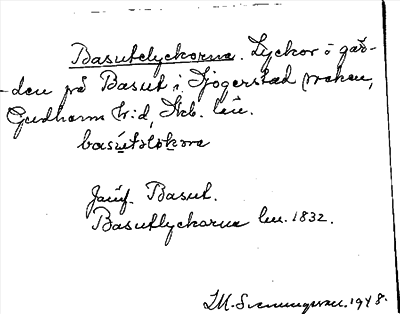 Basutelyckorna. Lyckor i går-
-den på Basut i Sjögerstad socken,
Gudhems h:d, Skb. län.
basútslokṇa
Jämf. Basut.
Basutlyckorna lm. 1832.
I.M. Svenungsson. 1948.